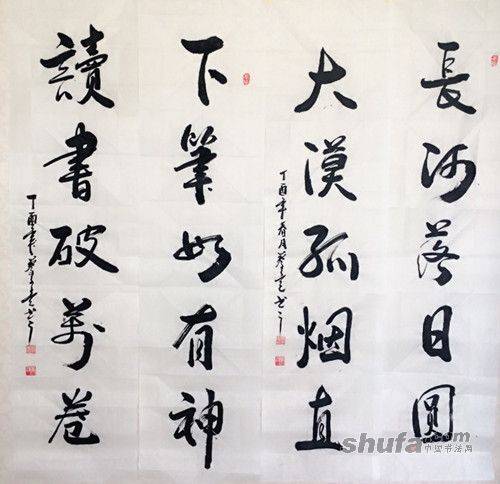 長河落日圓
大漠孤烟直
丁酉年春月
下筆如有神
讀書破萬卷
丁酉
shufa
中国书法网